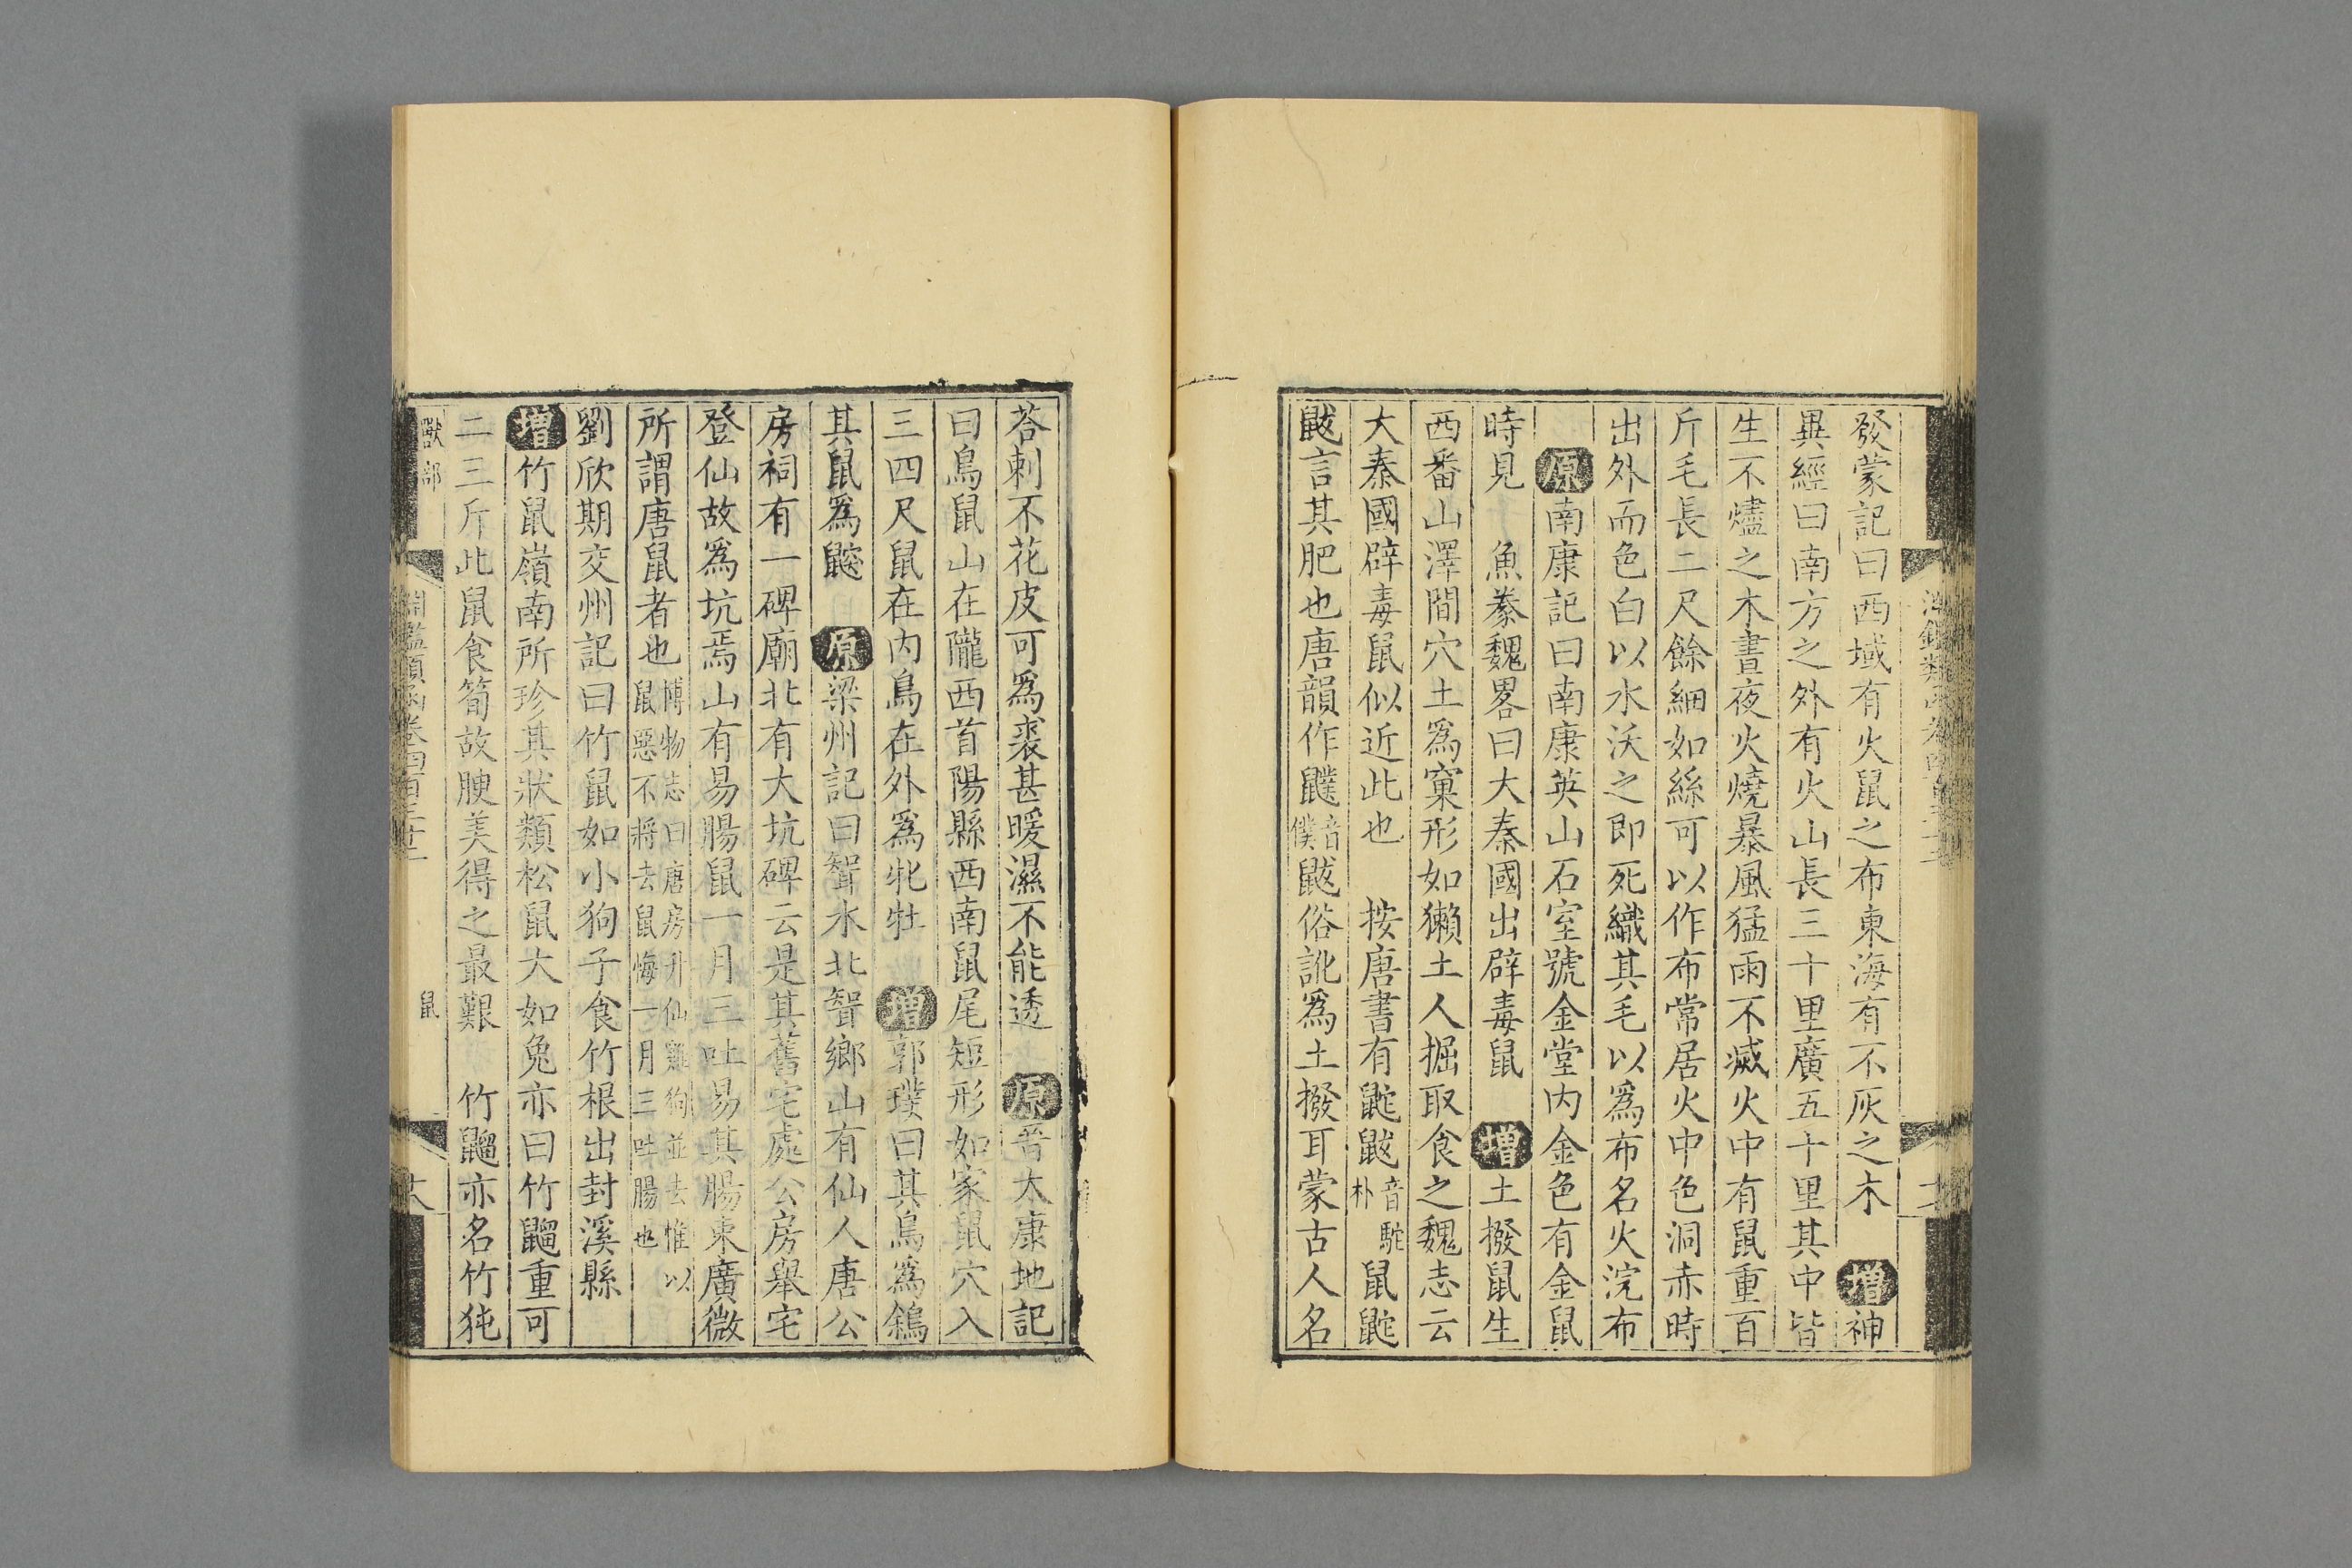 發蒙記曰西域有火鼠之布東海有不灰之木　增神
異經曰南方之外有火山長三十里廣五十里其中皆
生不燼之木晝夜火燒暴風猛雨不滅火中有鼠重百
斤毛長二尺餘細如絲可以作布常居火中色洞赤時
出外而色白以水沃之即死織其毛以爲布名火浣布
原南康記曰南康英山石室號金堂内金色有金鼠
時見　魚豢魏畧曰大秦國出辟毒鼠　增土撥鼠生
西番山澤間穴土爲窠形如獺土人掘取食之魏志云
大秦國辟毒鼠似近此也　按唐書有鼧鼥音駝朴鼠鼧
鼥言其肥也唐韻作䑑音僕鼥俗訛爲土撥耳蒙古人名
荅剌不花皮可爲裘甚暖濕不能透　原晋太康地記
曰鳥鼠山在隴西首陽縣西南鼠尾短形如家鼠穴入
三四尺鼠在内鳥在外爲牝牡　增郭璞曰其鳥爲鵌
其鼠爲鼵　原梁州記曰聟水北聟鄉山有仙人唐公
房祠有一碑廟北有大坑碑云是其舊宅處公房舉宅
登仙故爲坑焉山有易腸鼠一月三吐易其腸束廣微
所謂唐鼠者也博物志曰唐房升仙雞狗並去惟以鼠惡不將去鼠悔一月三吐腸也
劉欣期交州記曰竹鼠如小狗子食竹根出封溪縣
增竹鼠嶺南所珍其狀類松鼠大如兔亦曰竹鼺重可
二三斤此鼠食筍故腴美得之最艱　竹鼺亦名竹㹠
獸部　鼠
淵鑑類函卷四百三十二